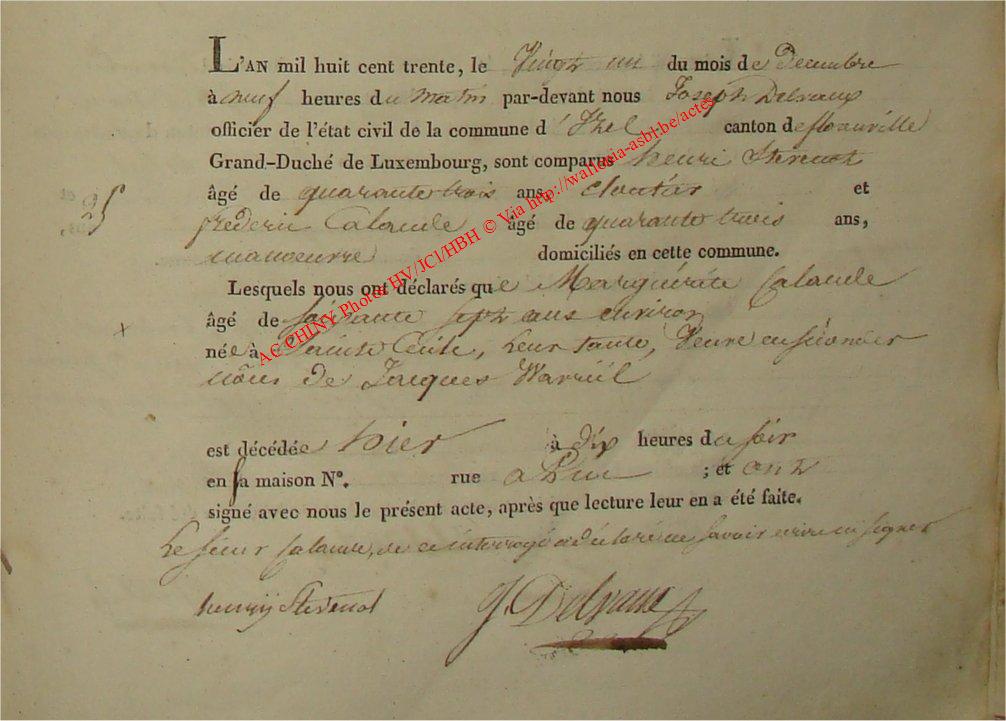 L'AN mil huit cent trente, le Vingt un du mois de Decembre
à neuf heures du Matin par-devant nous Joseph Delvaux
officier de l'état civil de la commune d' Izel canton de florenville
Grand-Duché de Luxembourg, sont comparus henri Stevenot
âgé de quarante trois ans, cloutier et
frederic Calande âgé de quarante trois ans,
manoeuvre domiciliés en cette commune.
Lesquels nous ont déclarés que Marguérite Calande
âgé de soisante sept ans environ
née à Sainte Cécile, leur tante, Veuve en secondes
nôces de Jacques
est décédée hier à dix heures du soir
en sa maison N°. rue ; et ont
signé avec nous le présent acte, après que lecture leur en a été faite.
Le sieur Calande, de ce interrogé a déclaré ne savoir ecrire ni signer
henry Stevenot J. Delvaux
25
AC CHINY Photos HV/JCl/HBH © Via http://wallonia-asbl.be/actes